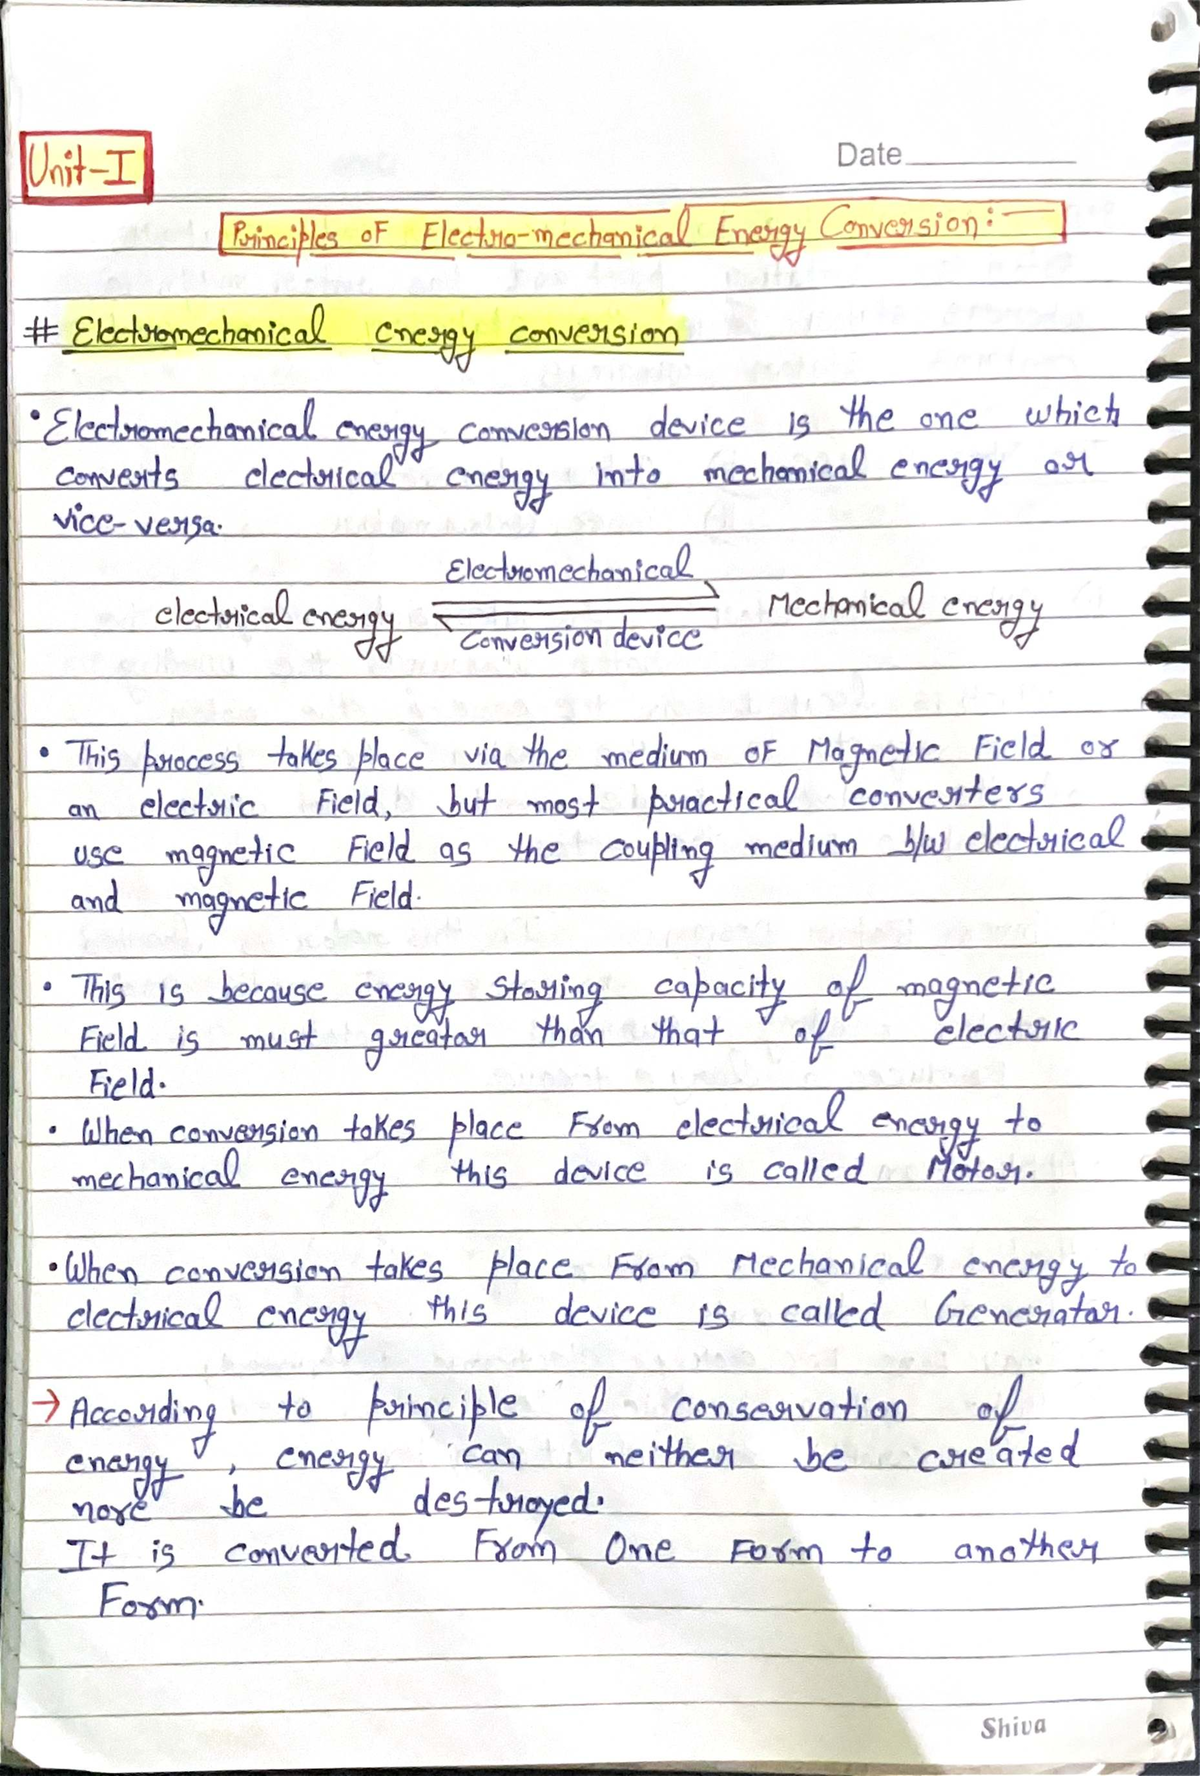 Unit-I
Date
Principles of Electro-mechanical Energy Conversion:-
# Electromechanical energy conversion
• Electromechanical energy conversion device is the one which
converts electrical energy into mechanical energy or
vice-versa.
Electromechanical
electrical energy ⇌ Mechanical energy
Conversion device
• This process takes place via the medium of Magnetic Field or
an electric Field, but most practical converters
use magnetic Field as the coupling medium b/w electrical
and magnetic Field.
• This is because energy storing capacity of magnetic
Field is must greatar than that of electric
Field.
• When conversion takes place From electrical energy to
mechanical energy this device is called Motor.
• When conversion takes place From Mechanical energy to
electrical energy this device is called Generatar.
→ According to principle of conservation of
energy, energy can neither be created
nore be destroyed.
It is converted From One Form to another
Form.
Shiva